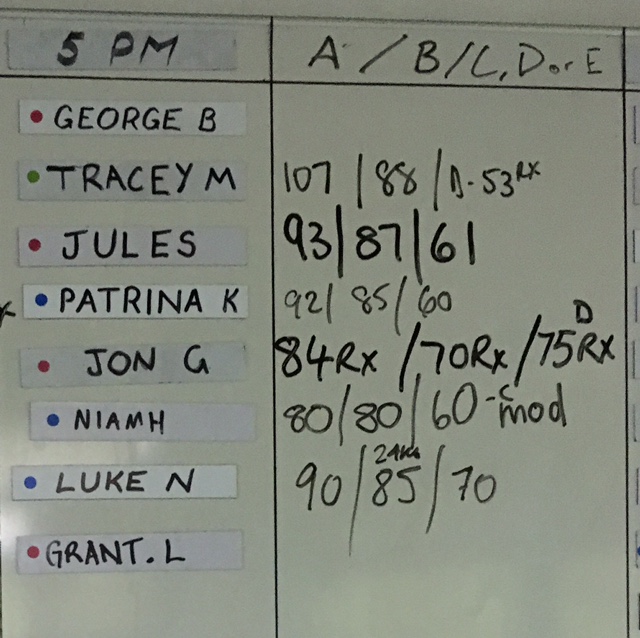 5 PM A / B / C, D or E
• GEORGE B
• TRACEY M 107 / 88 / D-53 RX
• JULES 93 / 87 / 61
• PATRINA K 92 / 85 / 60
• JON G 84 Rx / 70 Rx / 75 RX D
• NIAMH 80 / 80 / 60 - C mod
• LUKE N 90 / 24KG 85 / 70
• GRANT. L